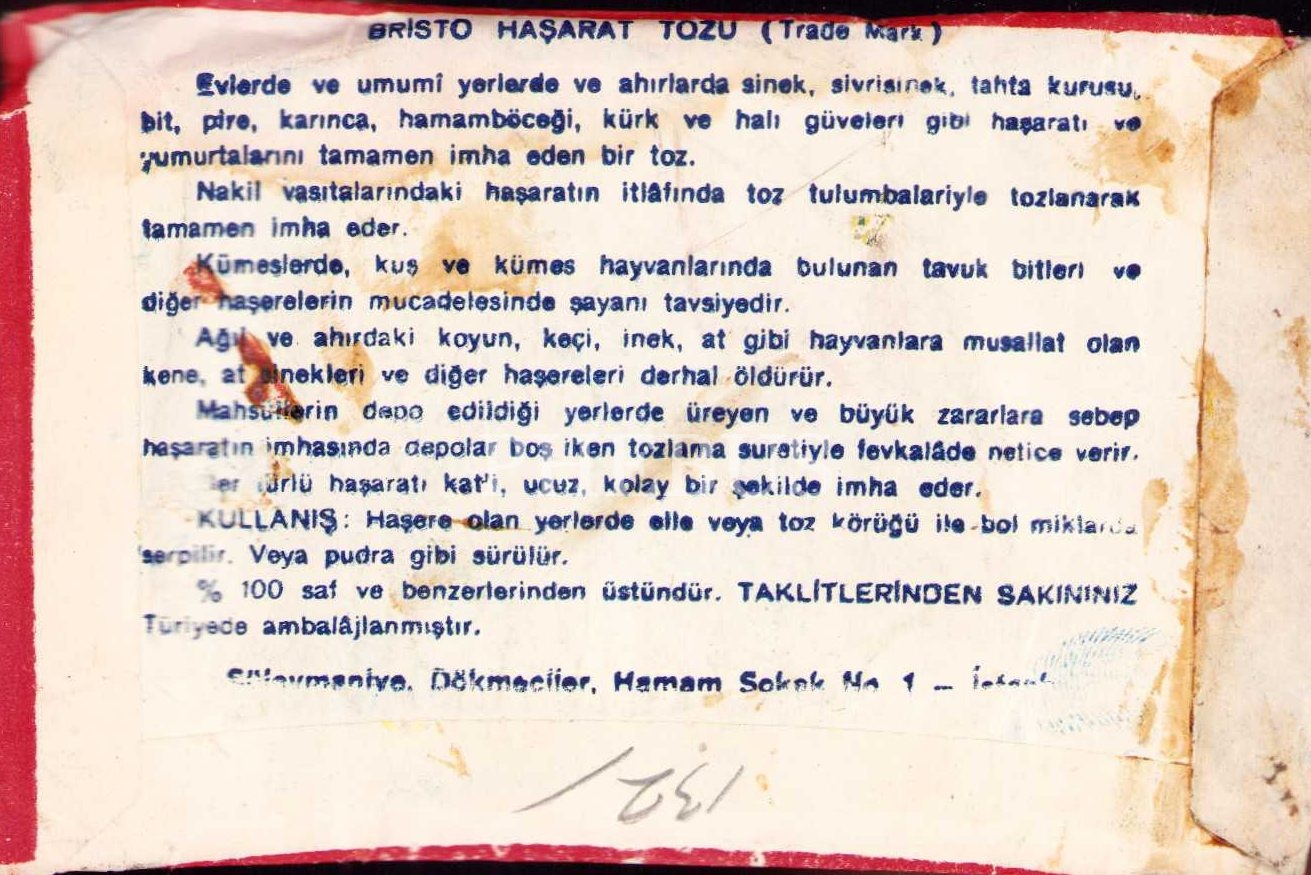 BRİSTO HAŞARAT TOZU (Trade Mark)
Evlerde ve umumî yerlerde ve ahırlarda sinek, sivrisinek, tahta kurusu,
bit, pire, karınca, hamamböceği, kürk ve halı güveleri gibi haşaratı ve
yumurtalarını tamamen imha eden bir toz.
Nakil vasıtalarındaki haşaratın itlâfında toz tulumbalariyle tozlanarak
tamamen imha eder.
Kümeslerde, kuş ve kümes hayvanlarında bulunan tavuk bitleri ve
diğer haşerelerin mucadelesinde şayanı tavsiyedir.
Ağıl ve ahırdaki koyun, keçi, inek, at gibi hayvanlara musallat olan
kene, at sinekleri ve diğer haşereleri derhal öldürür.
Mahsüllerin depo edildiği yerlerde üreyen ve büyük zararlara sebep
haşaratın imhasında depolar boş iken tozlama suretiyle fevkalâde netice verir.
Her türlü haşaratı kat'i, ucuz, kolay bir şekilde imha eder.
KULLANIŞ: Haşere olan yerlerde elle veya toz körüğü ile bol miktarda
serpilir. Veya pudra gibi sürülür.
% 100 saf ve benzerlerinden üstündür. TAKLİTLERİNDEN SAKININIZ
Türiyede ambalâjlanmıştır.
Süleymaniye, Dökmeciler, Hamam Sokak No 1 –